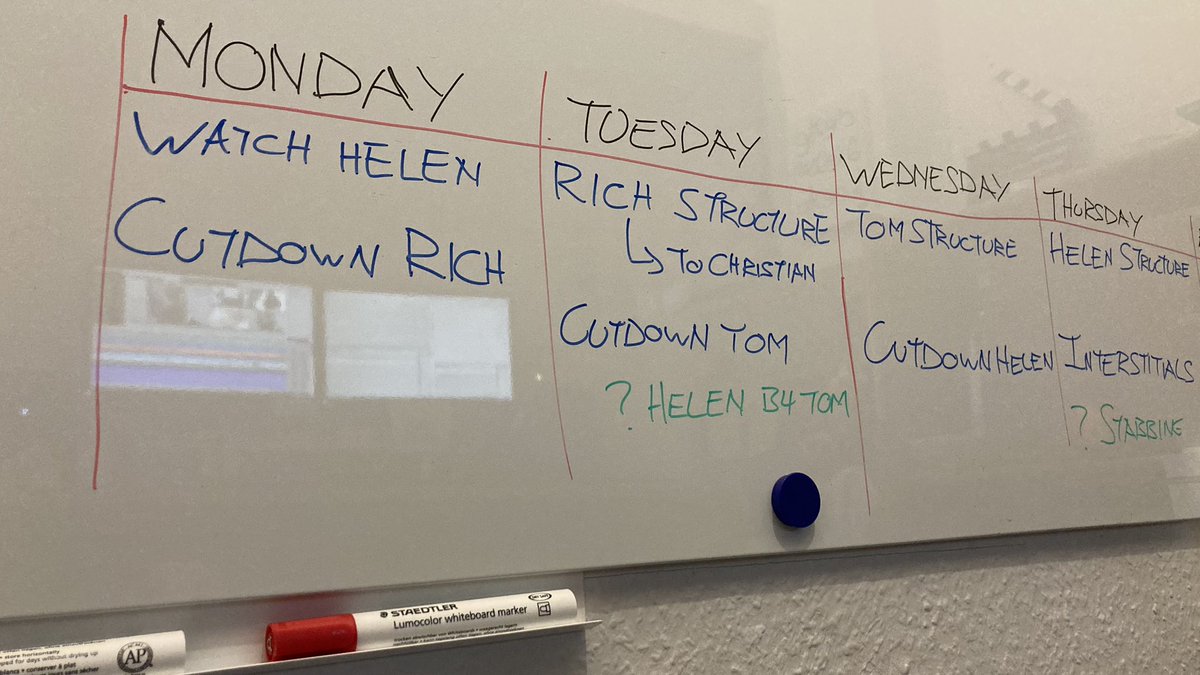 MONDAY
WATCH HELEN
CUTDOWN RICH
TUESDAY
RICH STRUCTURE
↳ TO CHRISTIAN
CUTDOWN TOM
? HELEN B4 TOM
WEDNESDAY
TOM STRUCTURE
CUTDOWN HELEN
THURSDAY
HELEN STRUCTURE
INTERSTITIALS
? STABBINE
STAEDTLER
Lumocolor whiteboard marker
store horizontally
for days without drying up
AP
blancs • conserver à plat